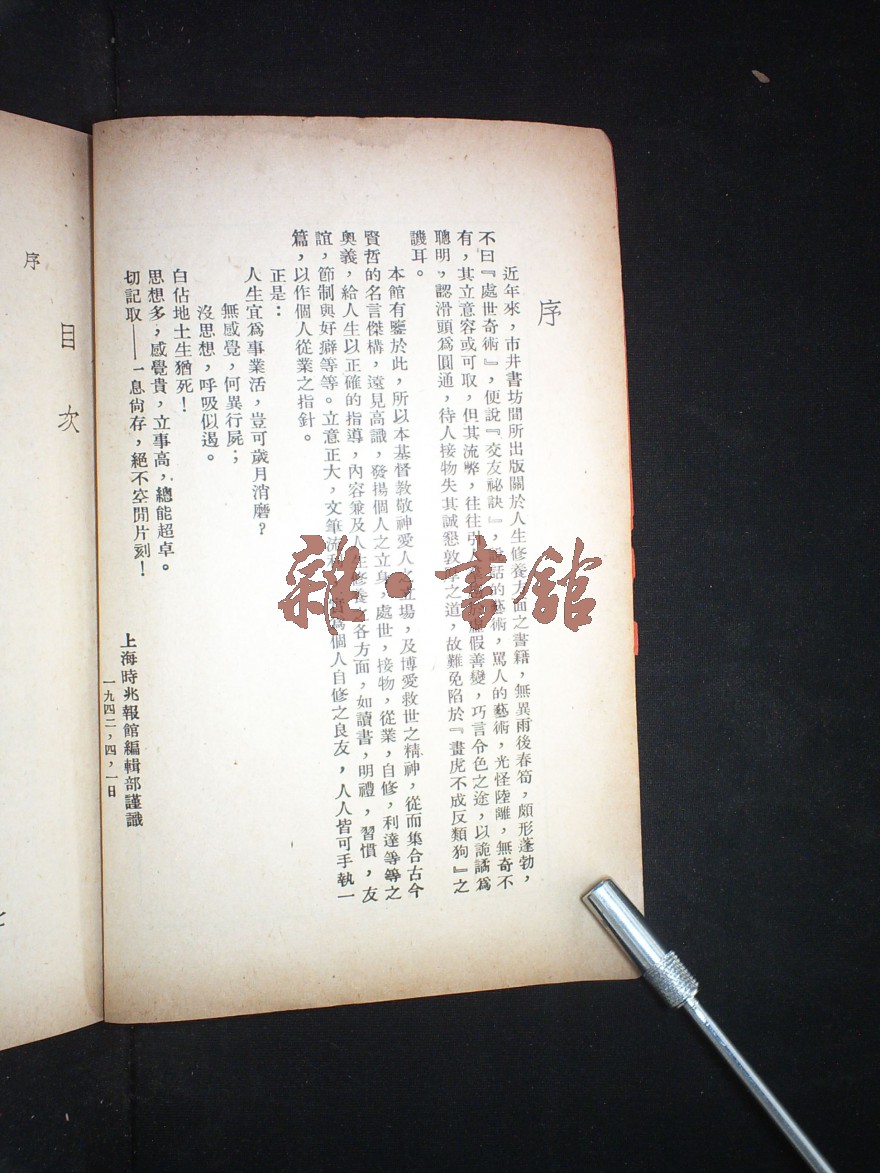 序
近年來，市井書坊間所出版關於人生修養方面之書籍，無異雨後春筍，頗形蓬勃，
不曰『處世奇術』，便說『交友祕訣』，說話的藝術，罵人的藝術，光怪陸離，無奇不
有，其立意容或可取，但其流弊，往往引人虛假善變，巧言令色之途，以詭譎爲
聰明，認滑頭爲圓通，待人接物失其誠懇敦厚之道，故難免陷於『畫虎不成反類狗』之
譏耳。
本館有鑒於此，所以本基督教敬神愛人之立場，及博愛救世之精神，從而集合古今
賢哲的名言傑構，遠見高識，發揚個人之立身，處世，接物，從業，自修，利達等等之
奧義，給人生以正確的指導，內容兼及人生修養之各方面，如讀書，明禮，習慣，友
誼，節制與好癖等等。立意正大，文筆流利，實爲個人自修之良友，人人皆可手執一
篇，以作個人從業之指針。
正是：
人生宜爲事業活，豈可歲月消磨？
無感覺，何異行屍；
沒思想，呼吸似遏。
白佔地土生猶死！
思想多，感覺貴，立事高，總能超卓。
切記取——一息尙存，絕不空閒片刻！
上海時兆報館編輯部謹識
一九四二，四，一日
目次
序
雜·書館